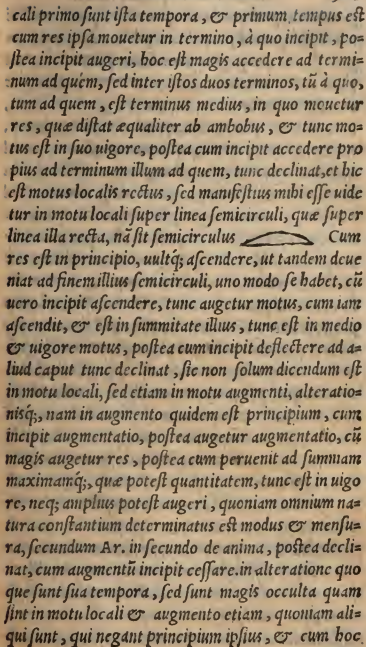 cali primo sunt ista tempora, & primum tempus est
cum res ipsa mouetur in termino, à quo incipit, po=
stea incipit augeri, hoc est magis accedere ad termi=
num ad quem, sed inter istos duos terminos, tū à quo,
tum ad quem, est terminus medius, in quo mouetur
res, quæ distat æqualiter ab ambobus, & tunc mo=
tus est in suo uigore, postea cum incipit accedere pro
pius ad terminum illum ad quem, tunc declinat, et hic
est motus localis rectus, sed manifestius mihi esse uide
tur in motu locali super linea semicirculi, quæ super
linea illa recta, nā sit semicirculus Cum
res est in principio, uultq; ascendere, ut tandem deue
niat ad finem illius semicirculi, uno modo se habet, cū
uero incipit ascendere, tunc augetur motus, cum iam
ascendit, & est in summitate illius, tunc est in medio
& uigore motus, postea cum incipit deflectere ad a=
liud caput tunc declinat, sic non solum dicendum est
in motu locali, sed etiam in motu augmenti, alteratio=
nisq;, nam in augmento quidem est principium, cum
incipit augmentatio, postea augetur augmentatio, cū
magis augetur res, postea cum peruenit ad summam
maximamq;, quæ potest quantitatem, tunc est in uigo
re, neq; amplius potest augeri, quoniam omnium na=
tura constantium determinatus est modus & mensu=
ra, secundum Ar. in secundo de anima, postea decli=
nat, cum augmentū incipit cessare. in alteratione quo
que sunt sua tempora, sed sunt magis occulta quam
sint in motu locali & augmento etiam, quoniam ali=
qui sunt, qui negant principium ipsius, & cum hoc